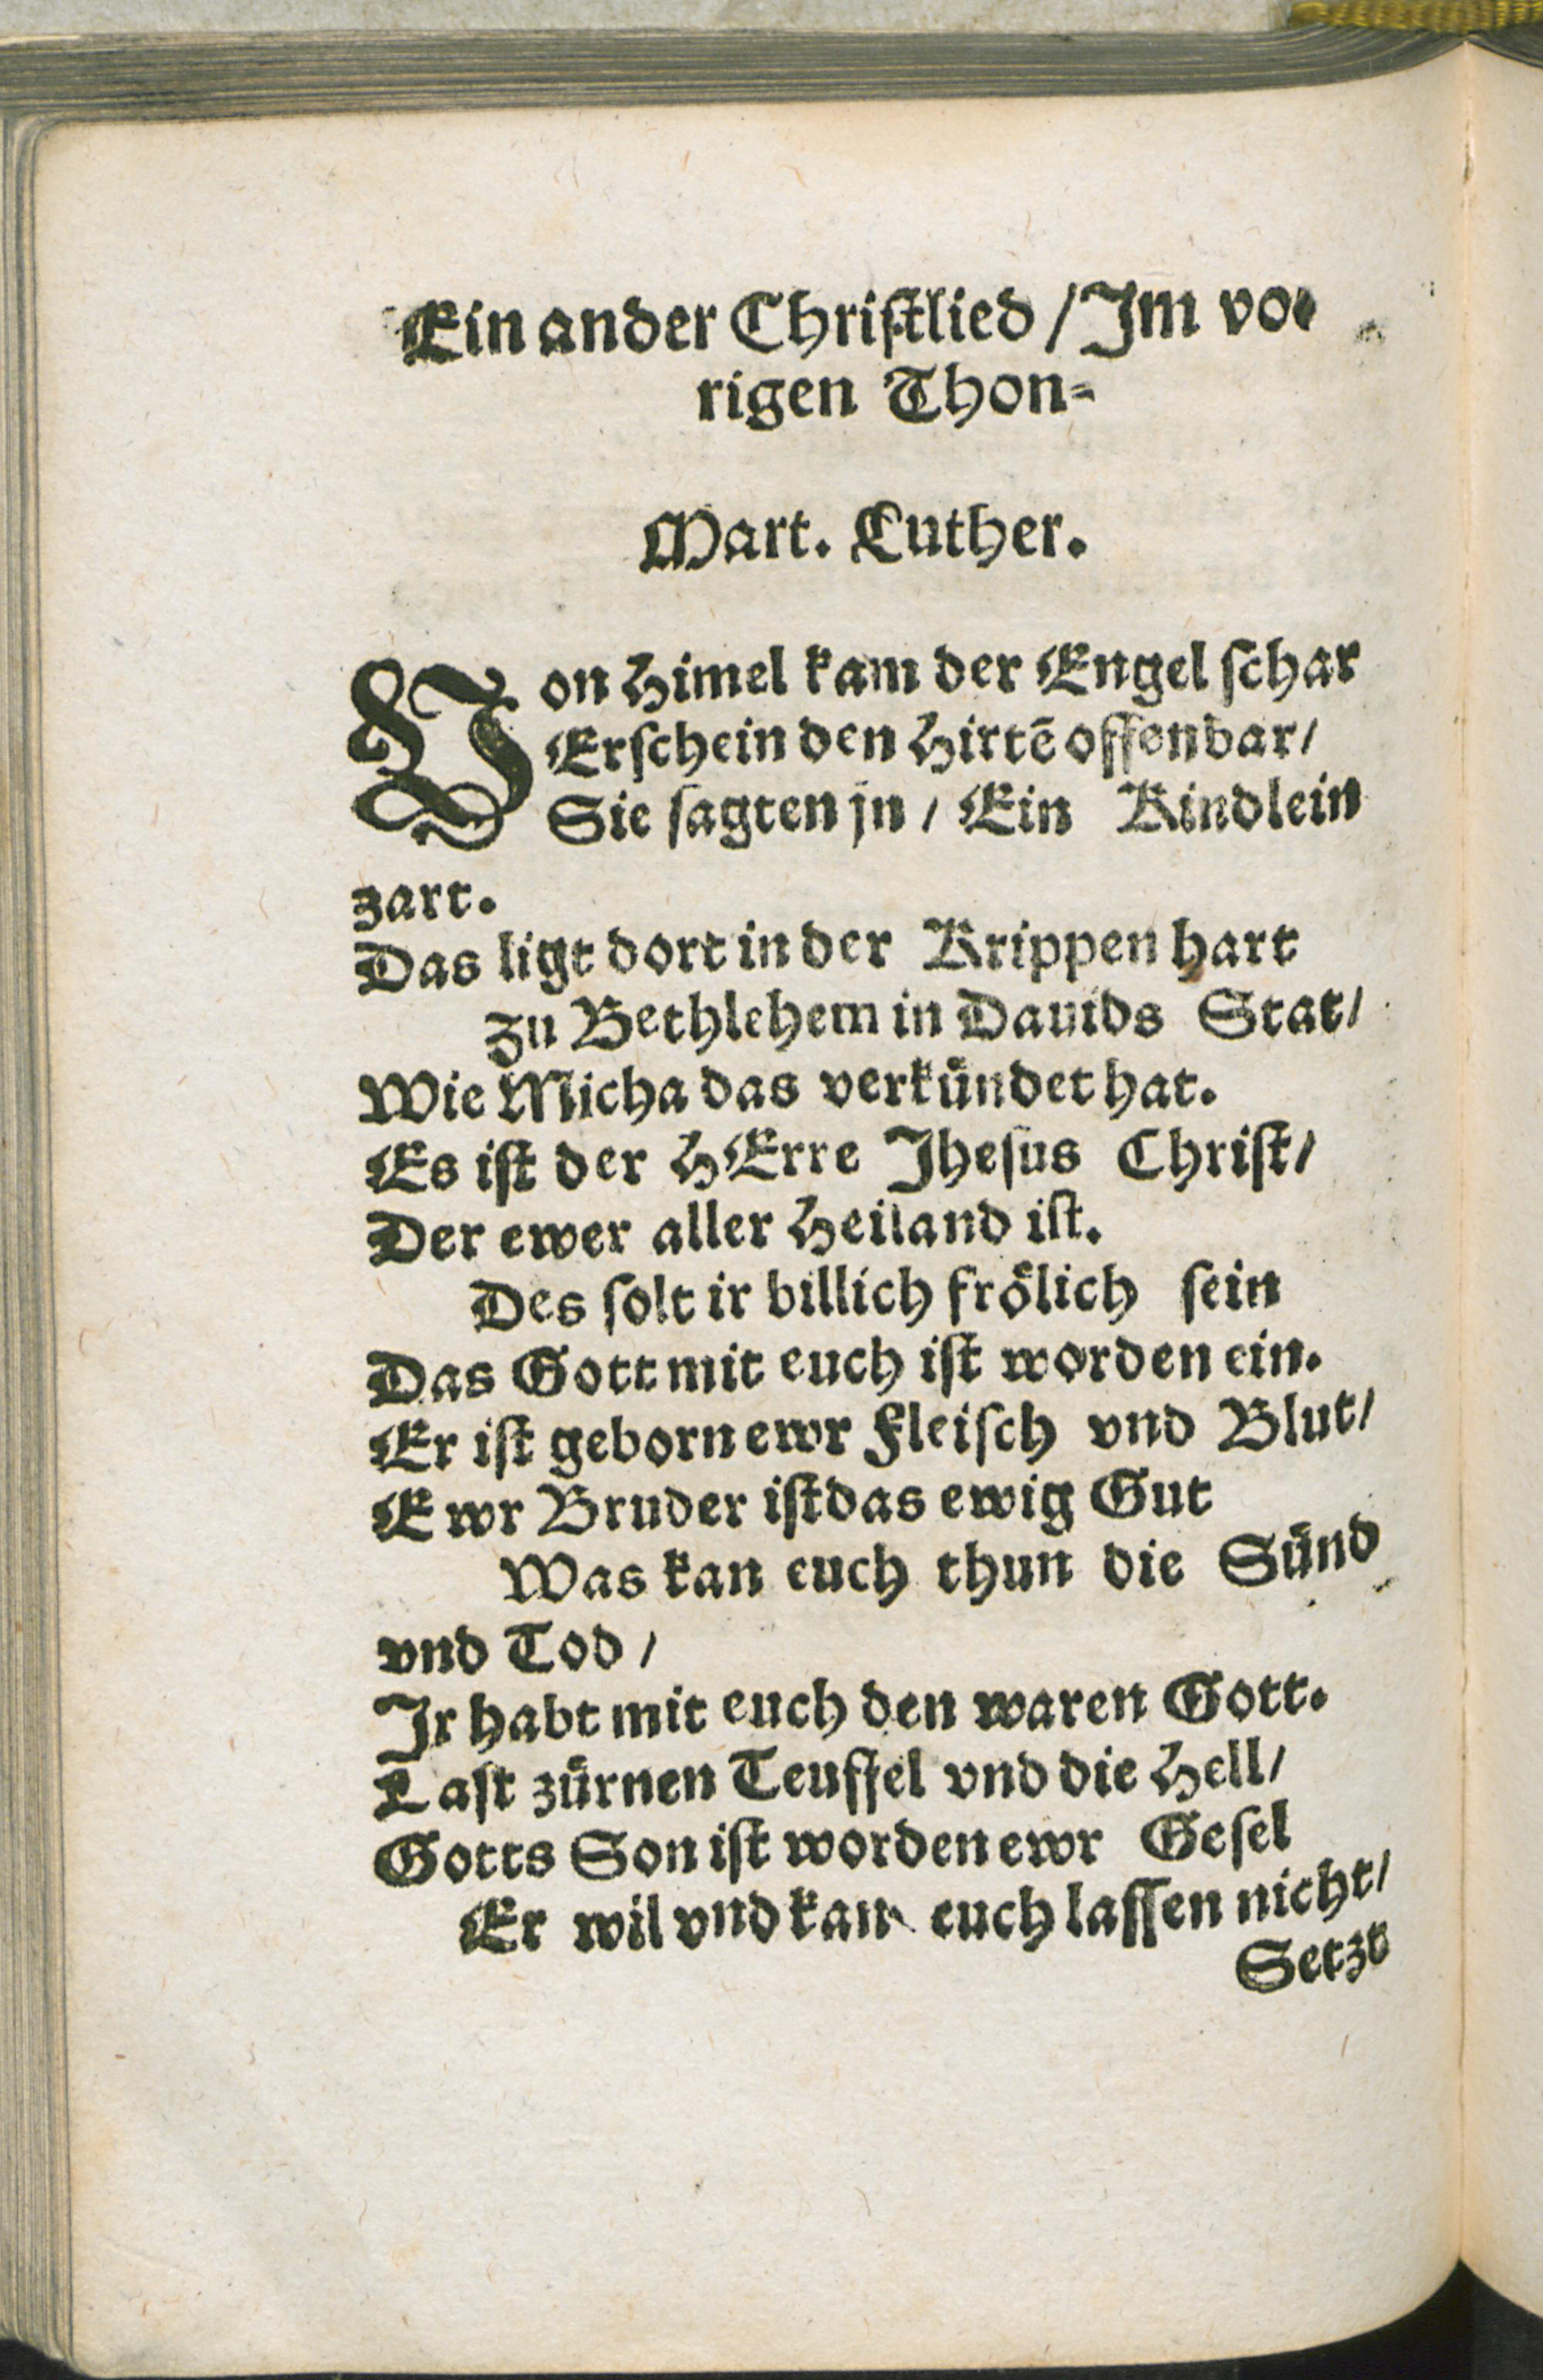 Ein ander Christlied / Im vo⸗
rigen Thon⸗
Mart. Luther.
Von Himel kam der Engel schar
Erschein den Hirtē offenbar /
Sie sagten jn / Ein Kindlein
zart.
Das ligt dort in der Krippen hart
Zu Bethlehem in Dauids Stat /
Wie Micha das verkündet hat.
Es ist der HErre Jhesus Christ /
Der ewer aller Heiland ist.
Des solt ir billich frölich sein
Das Gott mit euch ist worden ein.
Er ist geborn ewr Fleisch vnd Blut /
Ewr Bruder ist das ewig Gut
Was kan euch thun die Sünd
vnd Tod /
Ir habt mit euch den waren Gott.
Last zürnen Teuffel vnd die Hell /
Gotts Son ist worden ewr Gesel
Er wil vnd kan euch lassen nicht /
Setzt